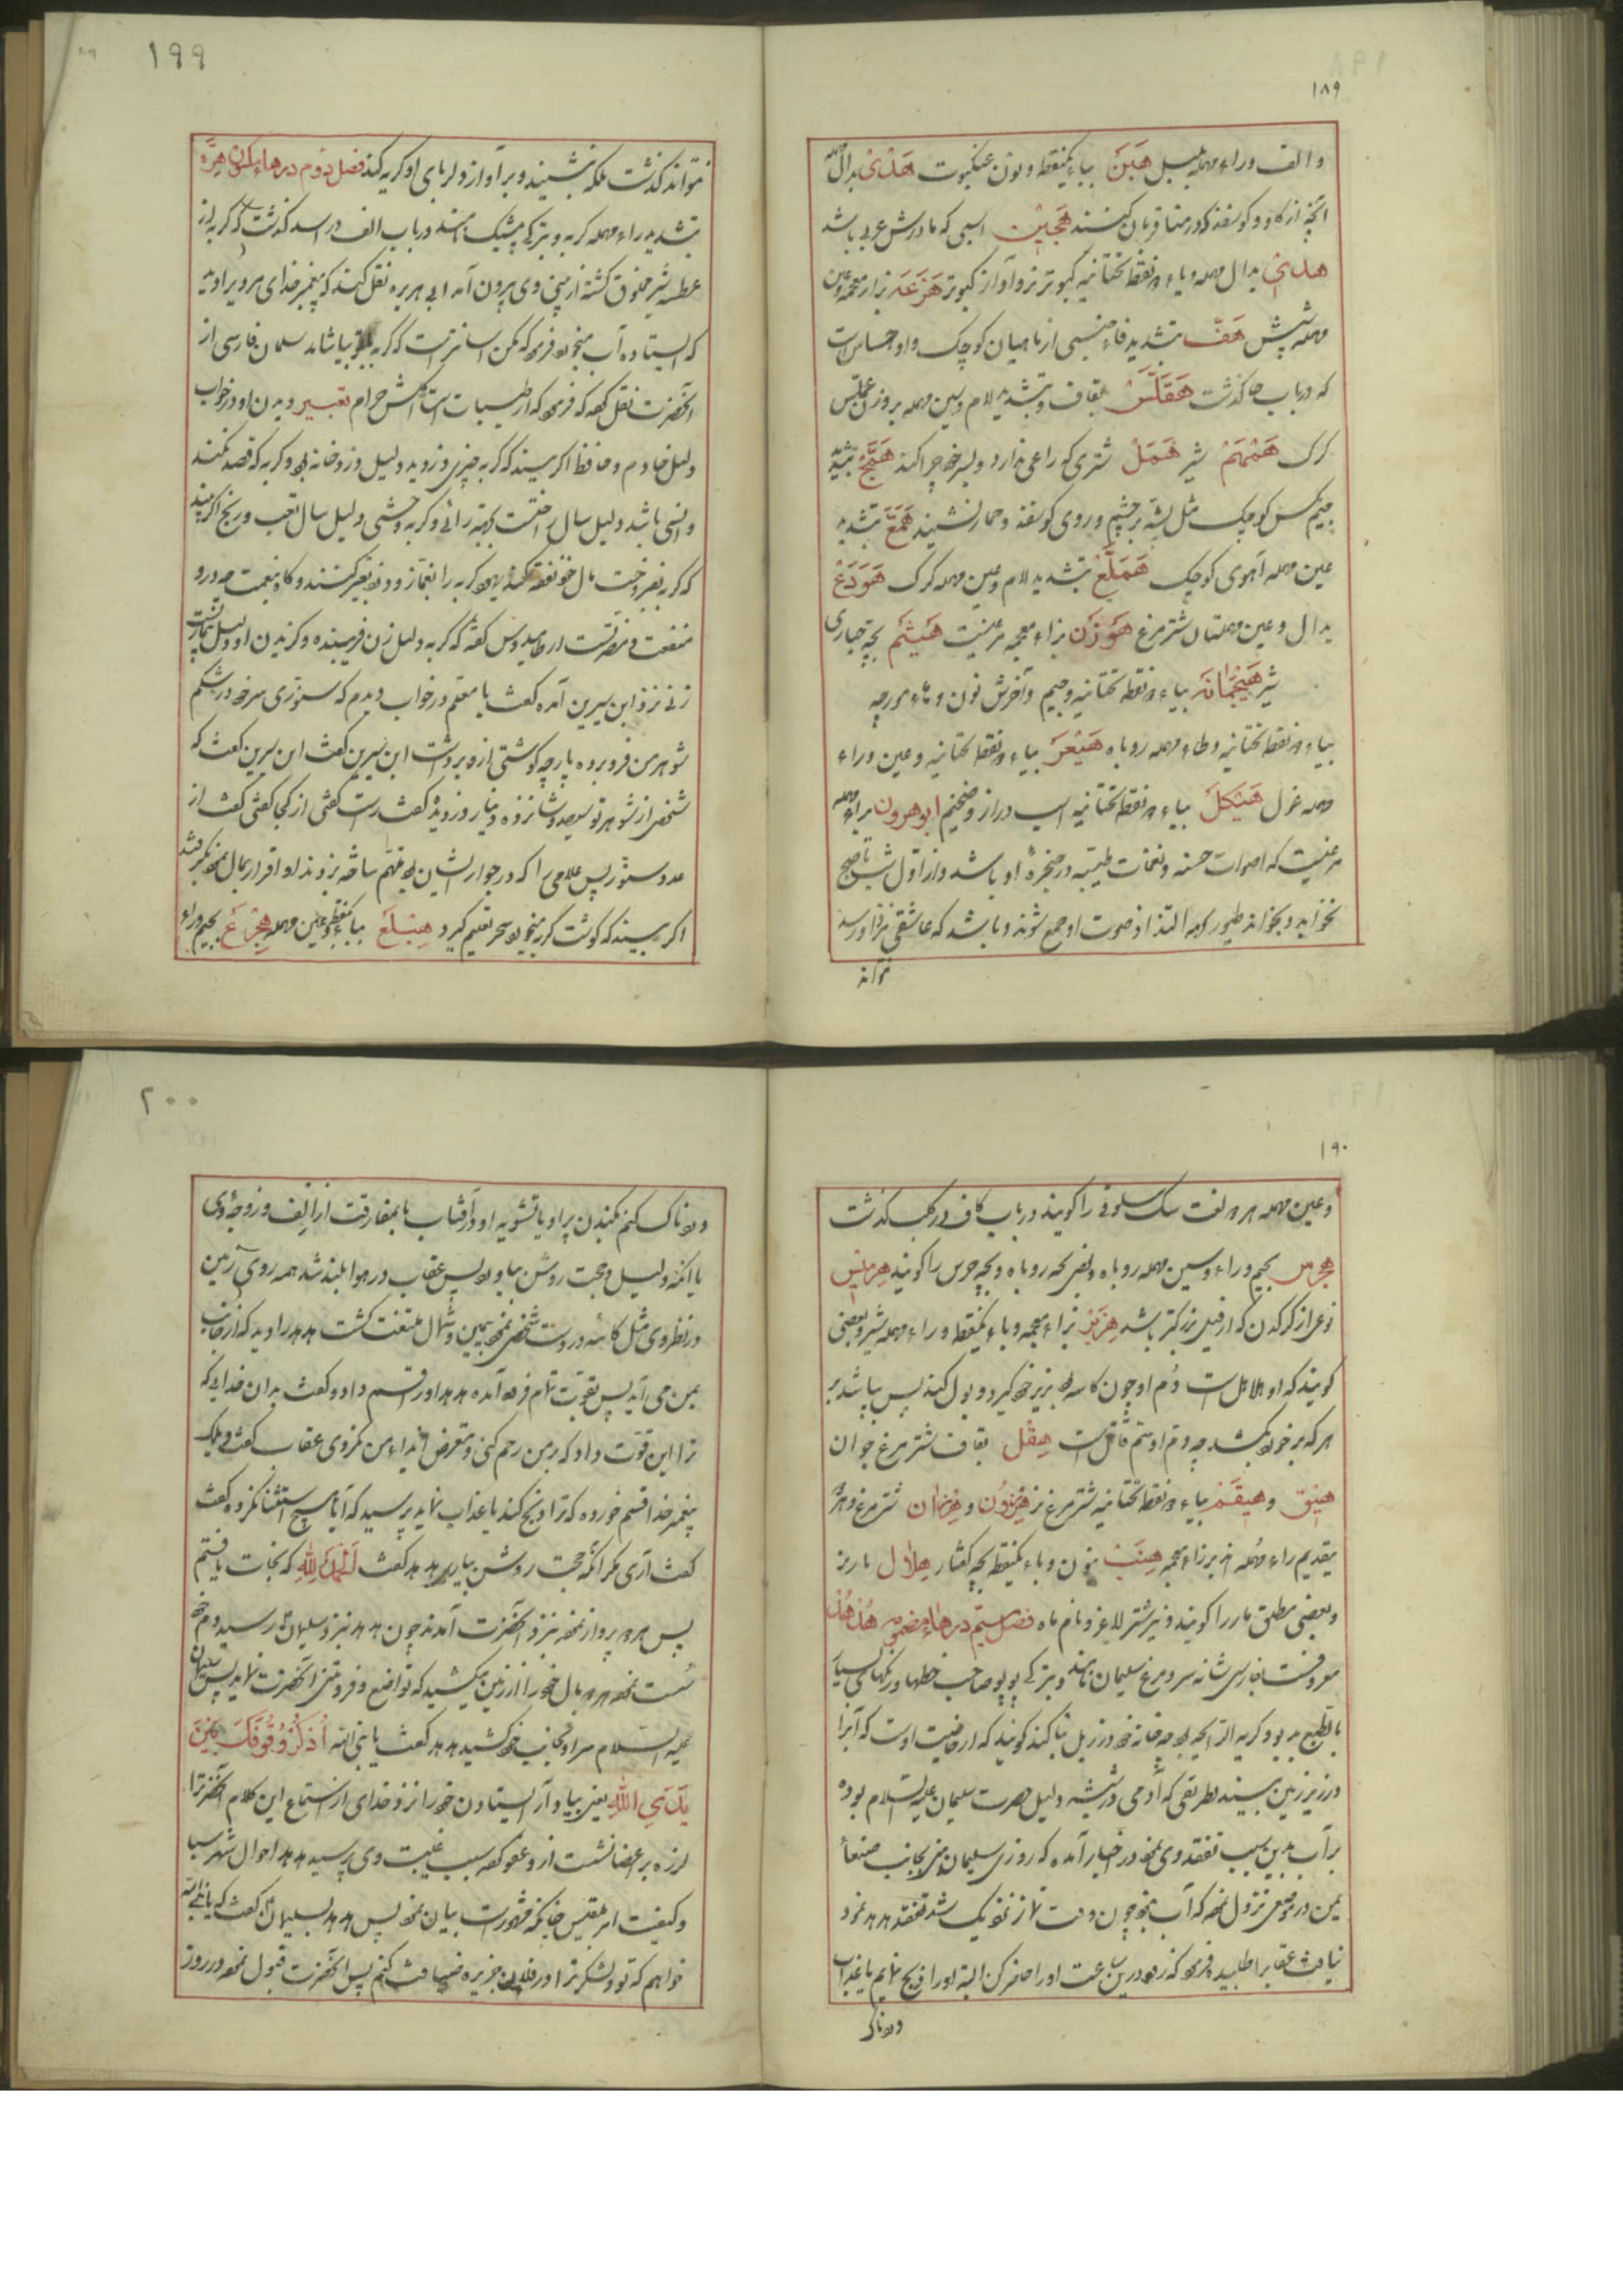 ۱۸۹
و الف وراء مهمله بلبل هَبَنَ بباء یکنقطه و نون عنکبوت هَدْی بدال مهمله
آنچه از کاو و کوسفند که در منا قربان کنند هَجین اسبی که مادرش عربی باشد
بدال مهمله و یاء دو نقطه تحتانیه کبوتر نر و آواز کبوتر هَزَعَه بزاء معجمه و عین
مهمله شپش هَفّ بتشدید فاء جنسی از ماهیان کوچک و او حساس است
که در باب حا کذشت هَقَلَّسْ بقاف و بتشدید لام و سین مهمله بر وزن عملس
کرک هَمْهَمْ شیر هَمَلْ شتری که راعی ندارد و بسر خود چرا کند هَمَّجْ بتشدید
میم مکس کوچک مثل پشه بر چشم و روی کوسفند و حمار نشیند هَمَّعْ بتشدید
عین مهمله آهوی کوچک هَمَلَّعْ بتشدید لام و عین مهمله کرک هَوْدَعْ
بدال و عین مهملتان شترمرغ هَوْزَن بزاء معجمه مرغیست هَیْثَم بچه حباری
شیر هَیْجُمانَه بیاء دو نقطه تحتانیه و جیم و آخرش نون و هاء مورچه
بیاء دو نقطه تحتانیه و طاء مهمله روباه هَیْعَرَ بیاء دو نقطه تحتانیه و عین و راء
مهمله غول هَیْکَلَ بیاء دو نقطه تحتانیه اسب دراز و ضخیم ابو هرون براء مهمله
مرغیست که اصوات حسنه و نغمات طیبه در حنجرهٔ او باشد و از اول شب تا صبح
نخوابد و بخواند طیور همه التذاذ صوت او جمع شوند و باشد که عاشقی نزد او رسد
نتواند
۱۹۹
نتواند کذشت بلکه بنشیند و بر آواز دلربای او کریه کند فصل دوم در هاء مکسوره هِرَّه
بتشدید راء مهمله کربه و بترکی پیشک نامند در باب الف در اسد کذشت که کربه از
عطسه شیر مخلوق کشته از بینی وی بیرون آمد ابی هریره نقل کند که پیغمبر خدای مرا دید
که ایستاده آب میخورم فرمود که مکن اسانتر است که کربه با تو بیاشامد سلمان فارسی از
آنحضرت نقل کرده که فرمود که از طیبات است اکلش حرام تعبیر دیدن او در خواب
دلیل خادم و حافظ اکر بیند که کربه چیزی دزدید دلیل دزد خانه بود و کربه که قصد نکند
و انسی باشد دلیل سال راحتست و کربه وحشی دلیل سال تعب و رنج اکر بیند
که کربه بفروخت مال خود نفقه کند یهود کربه را بغماز و دزد تعبیر کنند
منفعت و مضرتست ارطامیدوس کفته که کربه دلیل زن فریبنده و کزیدن او دلیل بیماریست
زنی نزد ابن سیرین آمده کفت یا معلم در خواب دیدم که سنوری سر خود در شکم
شوهر من فرو برده پارچه کوشتی ازو برداشت ابن سیرین کفت که
شخصی از شوهر تو سیصد و شانزده دینار دزدیده کفت راست کفتی از کجا کفتی کفت از
عدد سنور پس غلامی را که در جوار ایشان بود متهم ساخته بزدند او اقرار بمال نمود
اکر بیند که کوشت کربه میخورد سحر تعلیم کیرد هِبْلَع بباء یکنقطه و عین مهمله هِجْرَع بجیم و راء
۱۹۰
و عین مهمله هر دو لغت سک سلوقی را کویند در باب کاف در کلب کذشت
هجرس بجیم و راء و سین مهمله روباه و بعضی بچه روباه و بچه خرس را کویند هِرمیس
نوعی از کرکدن که از فیل بزرکتر باشد هِزَبْر بزاء معجمه و باء یکنقطه و راء مهمله شیر و بعضی
کویند که او هلاهل است دُم او چون کاسه بزیر خود کیرد و بول کند پس بپاشد بر
هر که بر خورد بکشد چه دم او سم قاتل است هِقْل بقاف شترمرغ جوان
هَیْق و هَیْقَم بیاء دو نقطه تحتانیه شترمرغ نر هِزَوْن و هِرْزان شترمرغ و هزه
بتقدیم راء مهمله بر زاء معجمه هِنَّب بنون و باء یکنقطه بچه کفتار هِلال مار نر
و بعضی مطلق مار را کویند و نیز شتر لاغر و نام ماه فصل سیم در هاء مضمومه هُدْهُد
معروفست بفارسی شانه سر و مرغ سلیمان نامند و بترکی پوپو صاحب خطها و رنکهای بسیار
بالطبع بد بو و کریه الرایحه بود چه خانه خود در زبل بنا کند کویند که از خاصیت اوست که آبرا
در زیر زمین بیند بطریقی که آدمی در شیشه دلیل حضرت سلیمان علیه السلام بوده
بر آب بدین سبب تفقد وی نمود در اخبار آمده که روزی سلیمان نبی بجانب صنعاء
یمن در موضعی نزول نمود که آب نبود چون وقت نماز نزدیک شد تفقد هدهد نمود
نیافت عقاب را طلبیده فرمود که زود درین ساعت او را حاضر کن البته او را ذبح نمایم یا عذاب
دردناک
۲۰۰
دردناک کنم بکندن پر او یا تشویه او در آفتاب یا بمفارقت از الف و زوجهٔ وی
یا آنکه دلیل و حجت روشن بیاورد پس عقاب در هوا بلند شد همه روی زمین
در نظر وی مثل کاسه در دست شخصی نمود بیمین و شمال ملتفت کشت هدهد را دید که از جانب
یمن می آید پس بقوت تمام فرود آمده هدهد او را قسم داد و کفت بدان خدایی که
ترا این قوت داد که بر من رحم کنی و متعرض ایذاء من نکردی عقاب کفت ویلک
پیغمبر خدا قسم خورده که ترا ذبح کند یا عذاب نماید پرسید که آیا هیچ استثنا نکرده کفت
کفت آری مکر آنکه حجت روشن بیارید هدهد کفت اَلْحَمْدُ لِلّٰهِ که نجات یافتم
پس هر دو پرواز نموده نزد آنحضرت آمدند چون هدهد نزد سلیمان رسید دم خود
سست نموده هر دو بال خود را از زمین میکشید که تواضع و فروتنی آنحضرت نماید پس سلیمان
علیه السلام سر او بجانب خود کشید هدهد کفت یا نبی الله اُذْکُرْ وُقُوفَکَ بَیْنَ
یَدَیِ اللّٰهِ یعنی بیاد آر ایستادن خود را نزد خدای از استماع این کلام آنحضرت را
لرزه بر اعضا نشست ازو عفو کرده سبب غیبت وی پرسید هدهد احوال شهر سبا
و کیفیت امر بلقیس چنانکه مشهور است بیان نمود پس هدهد بسلیمان کفت که یا نبی الله
خواهم که تو و لشکر ترا در فلان جزیره ضیافت کنم پس آنحضرت قبول نمود در روز